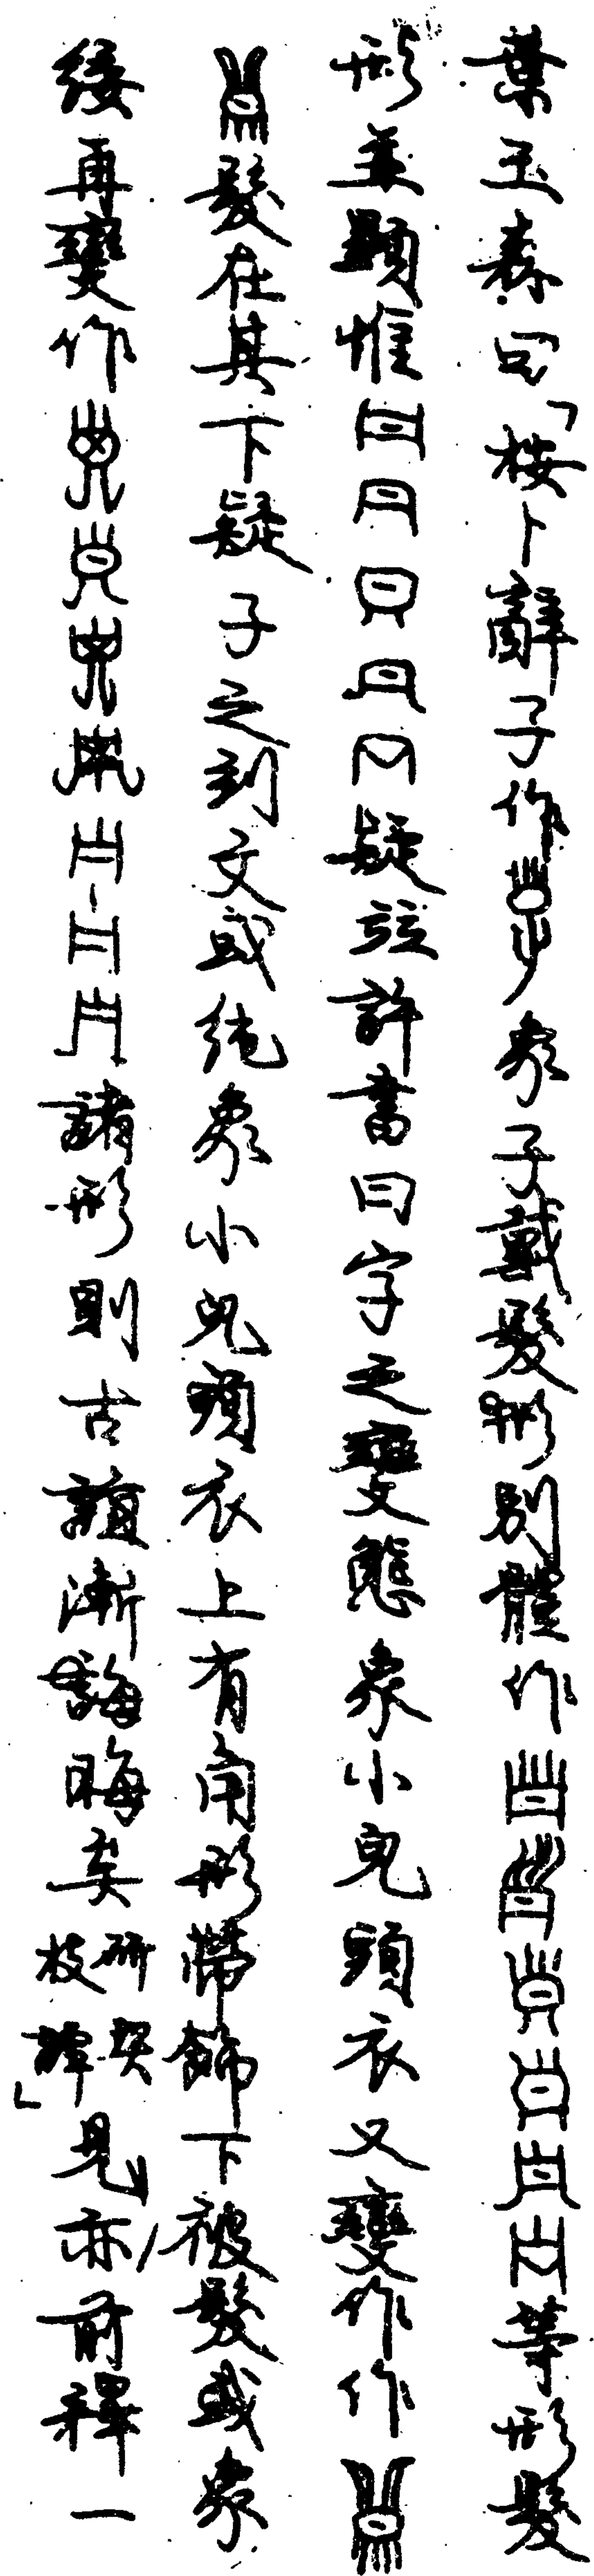 葉玉森曰「桉卜辭子作象子戴髮形別體作等形髮
形並顯惟疑竝許書曰字之變態象小兒頭衣又變作作
髮在其下疑子之刻文或純象小兒頭衣上有角形帶飾下被髮或象
緌再變作諸形則古誼漸誨晦矣研契枝譚」見亦前釋一